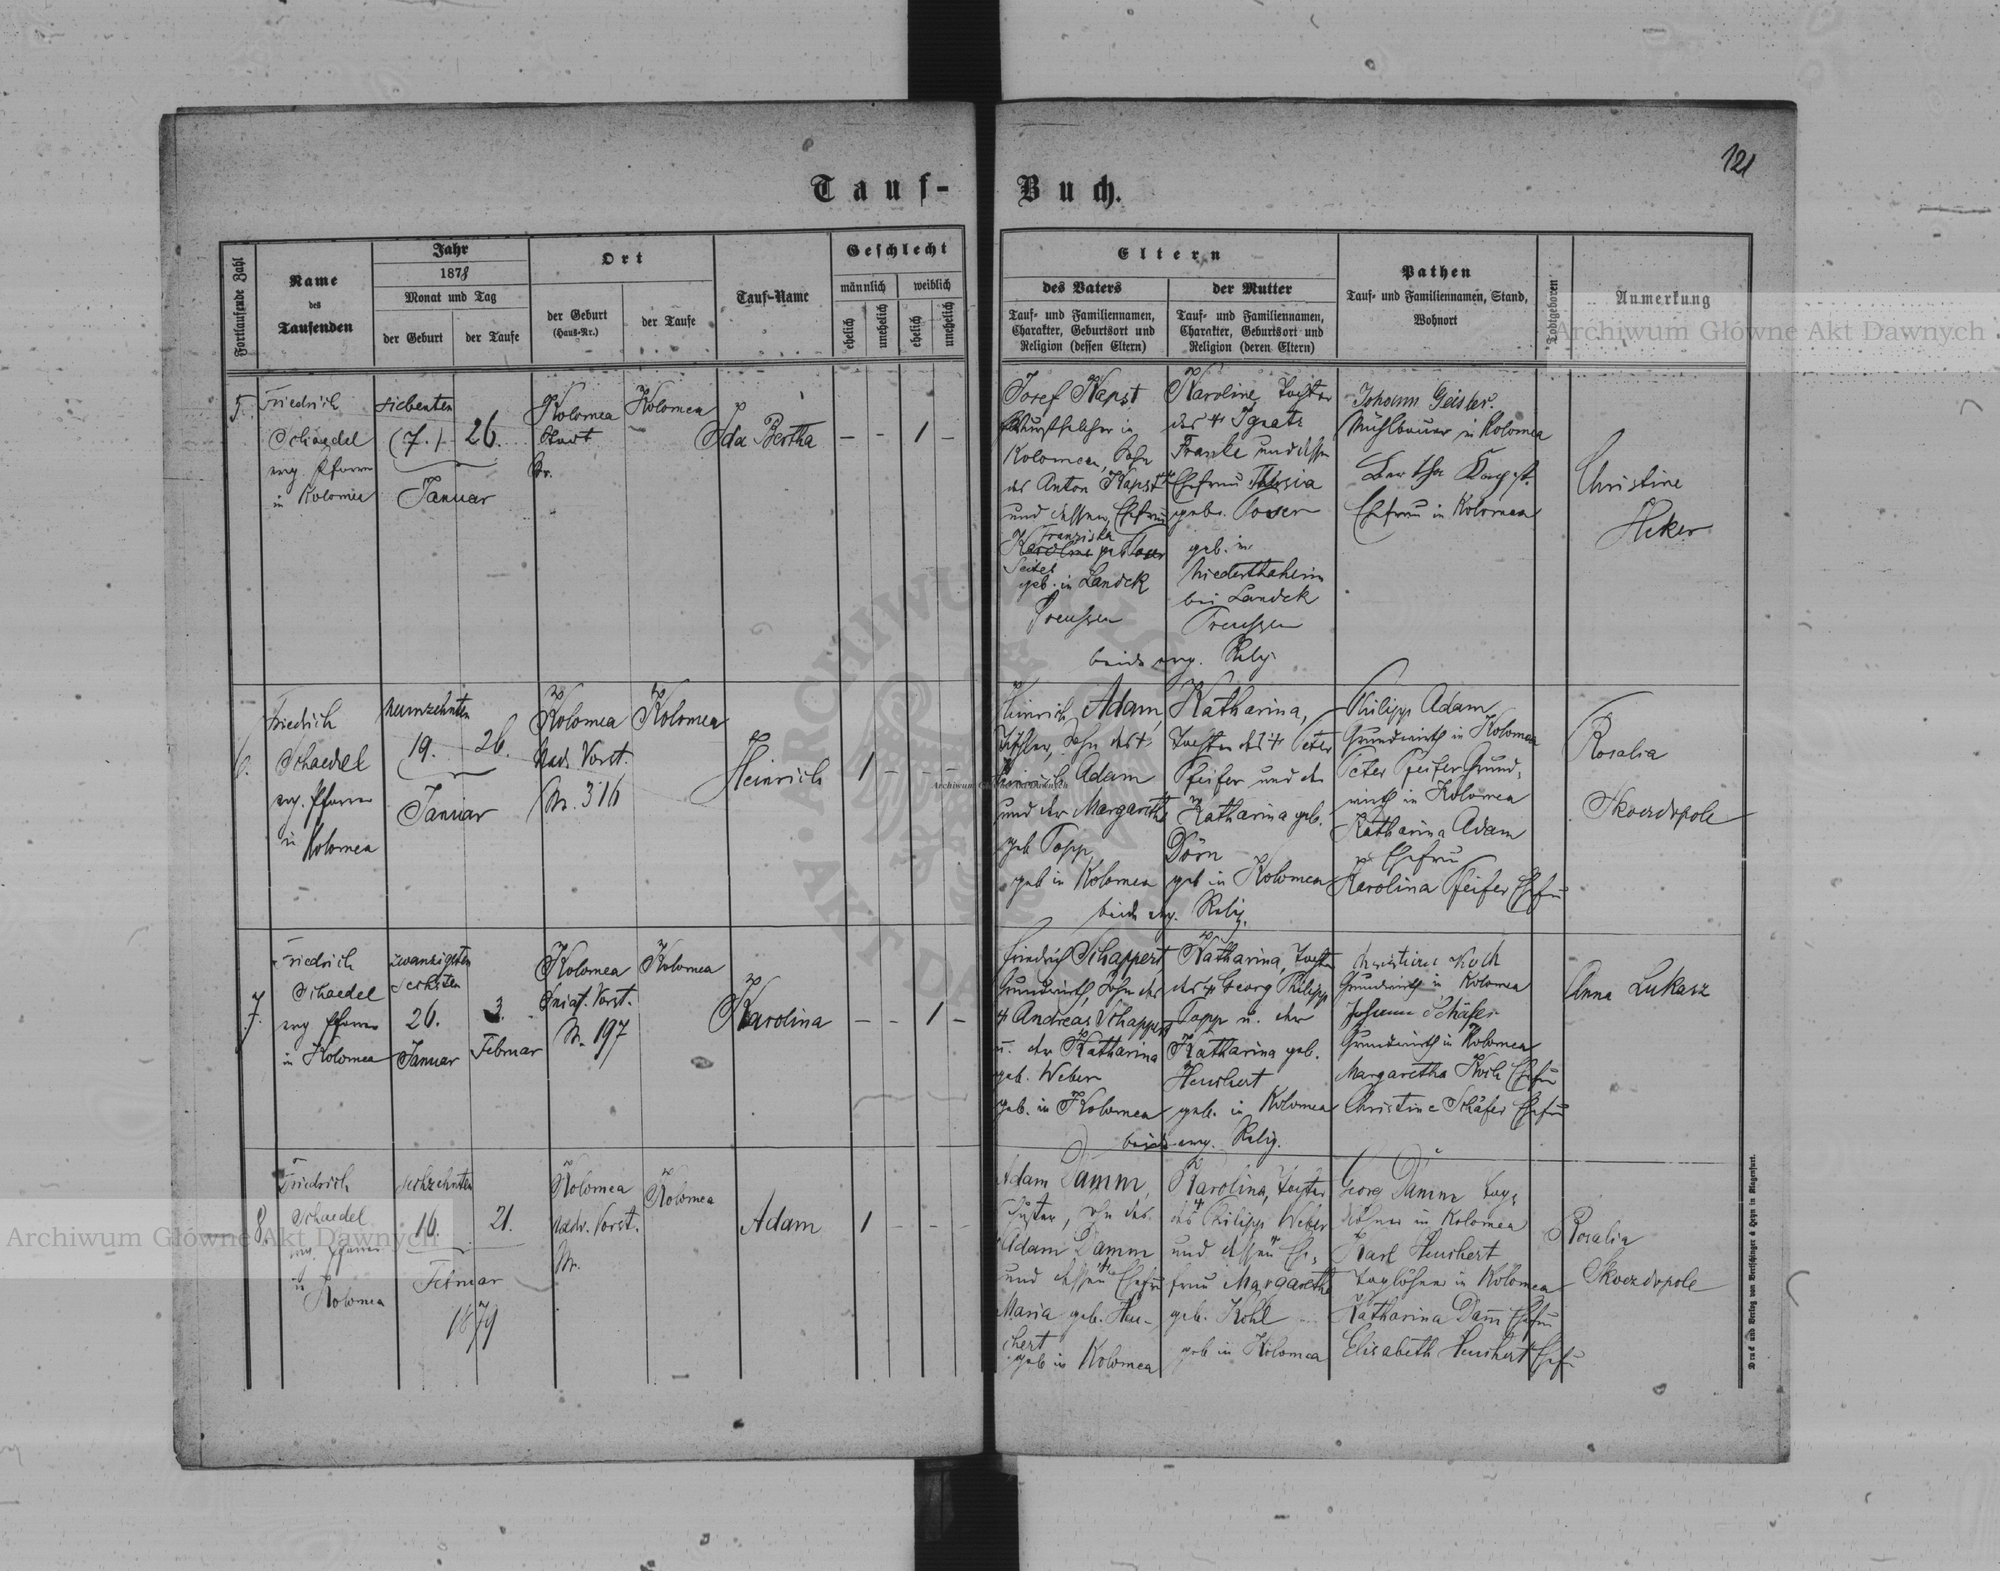 121
Tauf-Buch.
Fortlaufende Zahl
Name
des
Taufenden
Jahr
1878
Monat und Tag
der Geburt
der Taufe
Ort
der Geburt
(Haus-Nr.)
der Taufe
Tauf-Name
Geschlecht
männlich
weiblich
ehelich
unehelich
ehelich
unehelich
Eltern
des Vaters
Tauf- und Familiennamen,
Charakter, Geburtsort und
Religion (dessen Eltern)
der Mutter
Tauf- und Familiennamen,
Charakter, Geburtsort und
Religion (deren Eltern)
Pathen
Tauf- und Familiennamen, Stand,
Wohnort
Todtgeboren
Anmerkung
5.
Friedrich
Schaedel
evg. Pfarrer
in Kolomea
siebenten
(7.)
26.
Januar
Kolomea
Stadt
Nr.
Kolomea
Ida Bertha
- - 1 -
Josef Kapst
in
Kolomea, Sohn
des Anton Kapst
und dessen Ehefrau
Franziska
Karoline geb.
geb. in Landek
Preussen
Karoline, Tochter
des † Ignatz
Franke und dessen
Ehefrau
geb.
geb. in
bei Landek
Preussen
beide evg. Relig.
Johann Geisler
Mühlbauer in Kolomea
Bertha
Ehefrau in Kolomea
Christine
Heker
6.
Friedrich
Schaedel
evg. Pfarrer
in
Kolomea
neunzehnten
19.
26.
Januar
Kolomea
Nadw. Vorst.
Nr. 316
Kolomea
Heinrich
1 - - -
Heinrich Adam,
Tischler, Sohn des †
Heinrich Adam
und der Margaretha
geb. Popp
geb in Kolomea
Katharina,
Tochter des † Peter
Pfeifer und der
Katharina geb.
Dörn
geb in Kolomea
beide evg. Relig.
Philipp Adam
Grundwirth in Kolomea
Peter Pfeifer Grund-
wirth in Kolomea
Katharina Adam
Ehefrau
Karolina Pfeifer Ehefrau
Rosalia
Skozdopole
7.
Friedrich
Schaedel
evg Pfarrer
in Kolomea
zwanzigsten
sechsten
26.
Januar
3.
Februar
Kolomea
Sniat. Vorst.
Nr. 197
Kolomea
Karolina
- - 1 -
Friedrich Schappert
Grundwirth, Sohn des
† Andreas Schappert
u. der Katharina
geb. Weber
geb. in Kolomea
Katharina, Tochter
des † Georg Philipp
Popp u. der
Katharina geb.
Heuchert
geb. in Kolomea
beide evg. Relig.
Koch
Grundwirth in Kolomea
Johann Schäfer
Grundwirth in Kolomea
Margaretha Koch Ehefrau
Christine Schäfer Ehefrau
Anna Lukasz
8.
Friedrich
Schaedel
evg. Pfarrer
in
Kolomea
sechzehnten
16.
21.
Februar
1879
Kolomea
Nadw. Vorst.
Nr.
Kolomea
Adam
1 - - -
Adam Damm,
Adam Damm
und dessen Ehefrau
Maria geb. Heu-
chert
geb in Kolomea
Karolina, Tochter
des † Philipp Weber
und dessen Ehe-
frau Margaretha
geb. Kohl
geb in Kolomea
Georg Damm Tag-
löhner in Kolomea
Karl Heuchert
Taglöhner in Kolomea
Katharina Damm Ehefrau
Elisabeth Heuchert Ehefrau
Rosalia
Skozdopole
Druck und Verlag von Bertschinger & Heyn in Klagenfurt.
Archiwum Główne Akt Dawnych
Archiwum Główne Akt Dawnych
Archiwum Główne Akt Dawnych